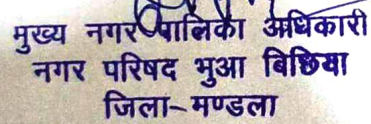 मुख्य नगर पालिका अधिकारी
नगर परिषद भुआ बिछिया
जिला-मण्डला